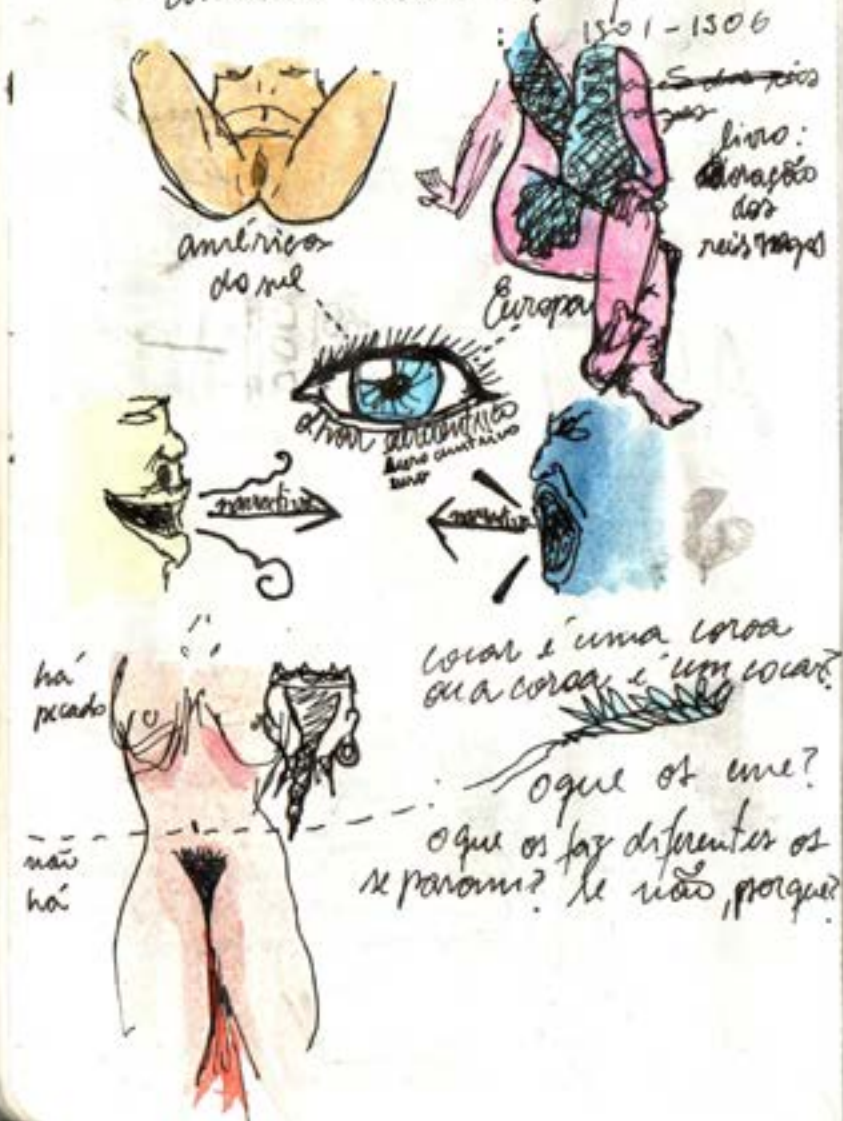 1501-1506
livro:
adoração
dos
reis magos
américas
do sul
Europa
olhar eurocentrico
euro centrico
euro
narrativa
narrativa
há
pecado
cocar é uma coroa
ou a coroa é um cocar?
o que os une?
o que os faz diferentes os
separam? se não, porque?
não
há